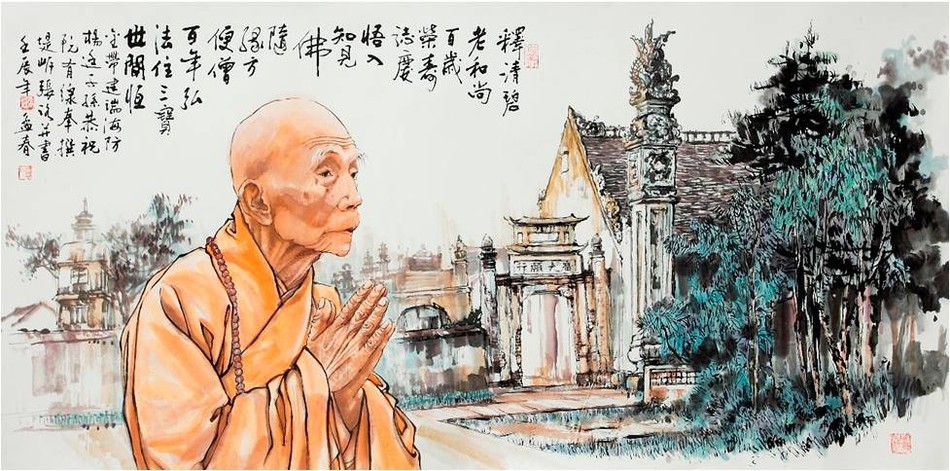 釋清碧
老和尚
百歲
榮壽
誌慶
悟入
知見
佛
隨
緣方
便僧
百年弘
法住三寶
世間恆
建瑞海防
楊 子孫恭祝
阮有 奉撰
堤岸張路并書
壬辰年孟春